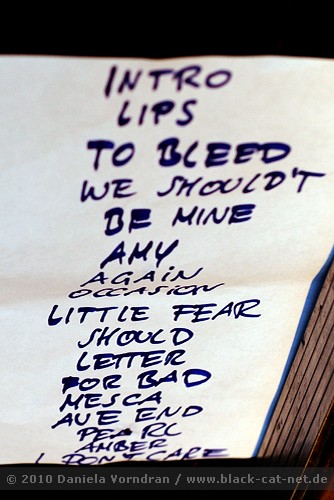 INTRO
LIPS
TO BLEED
WE SHOULD'T
BE MINE
AMY
AGAIN
OCCASION
LITTLE FEAR
SHOULD
LETTER
FOR BAD
MESCA
AVE END
PEARL
AMBER
I DON'T CARE
© 2010 Daniela Vorndran / www.black-cat-net.de